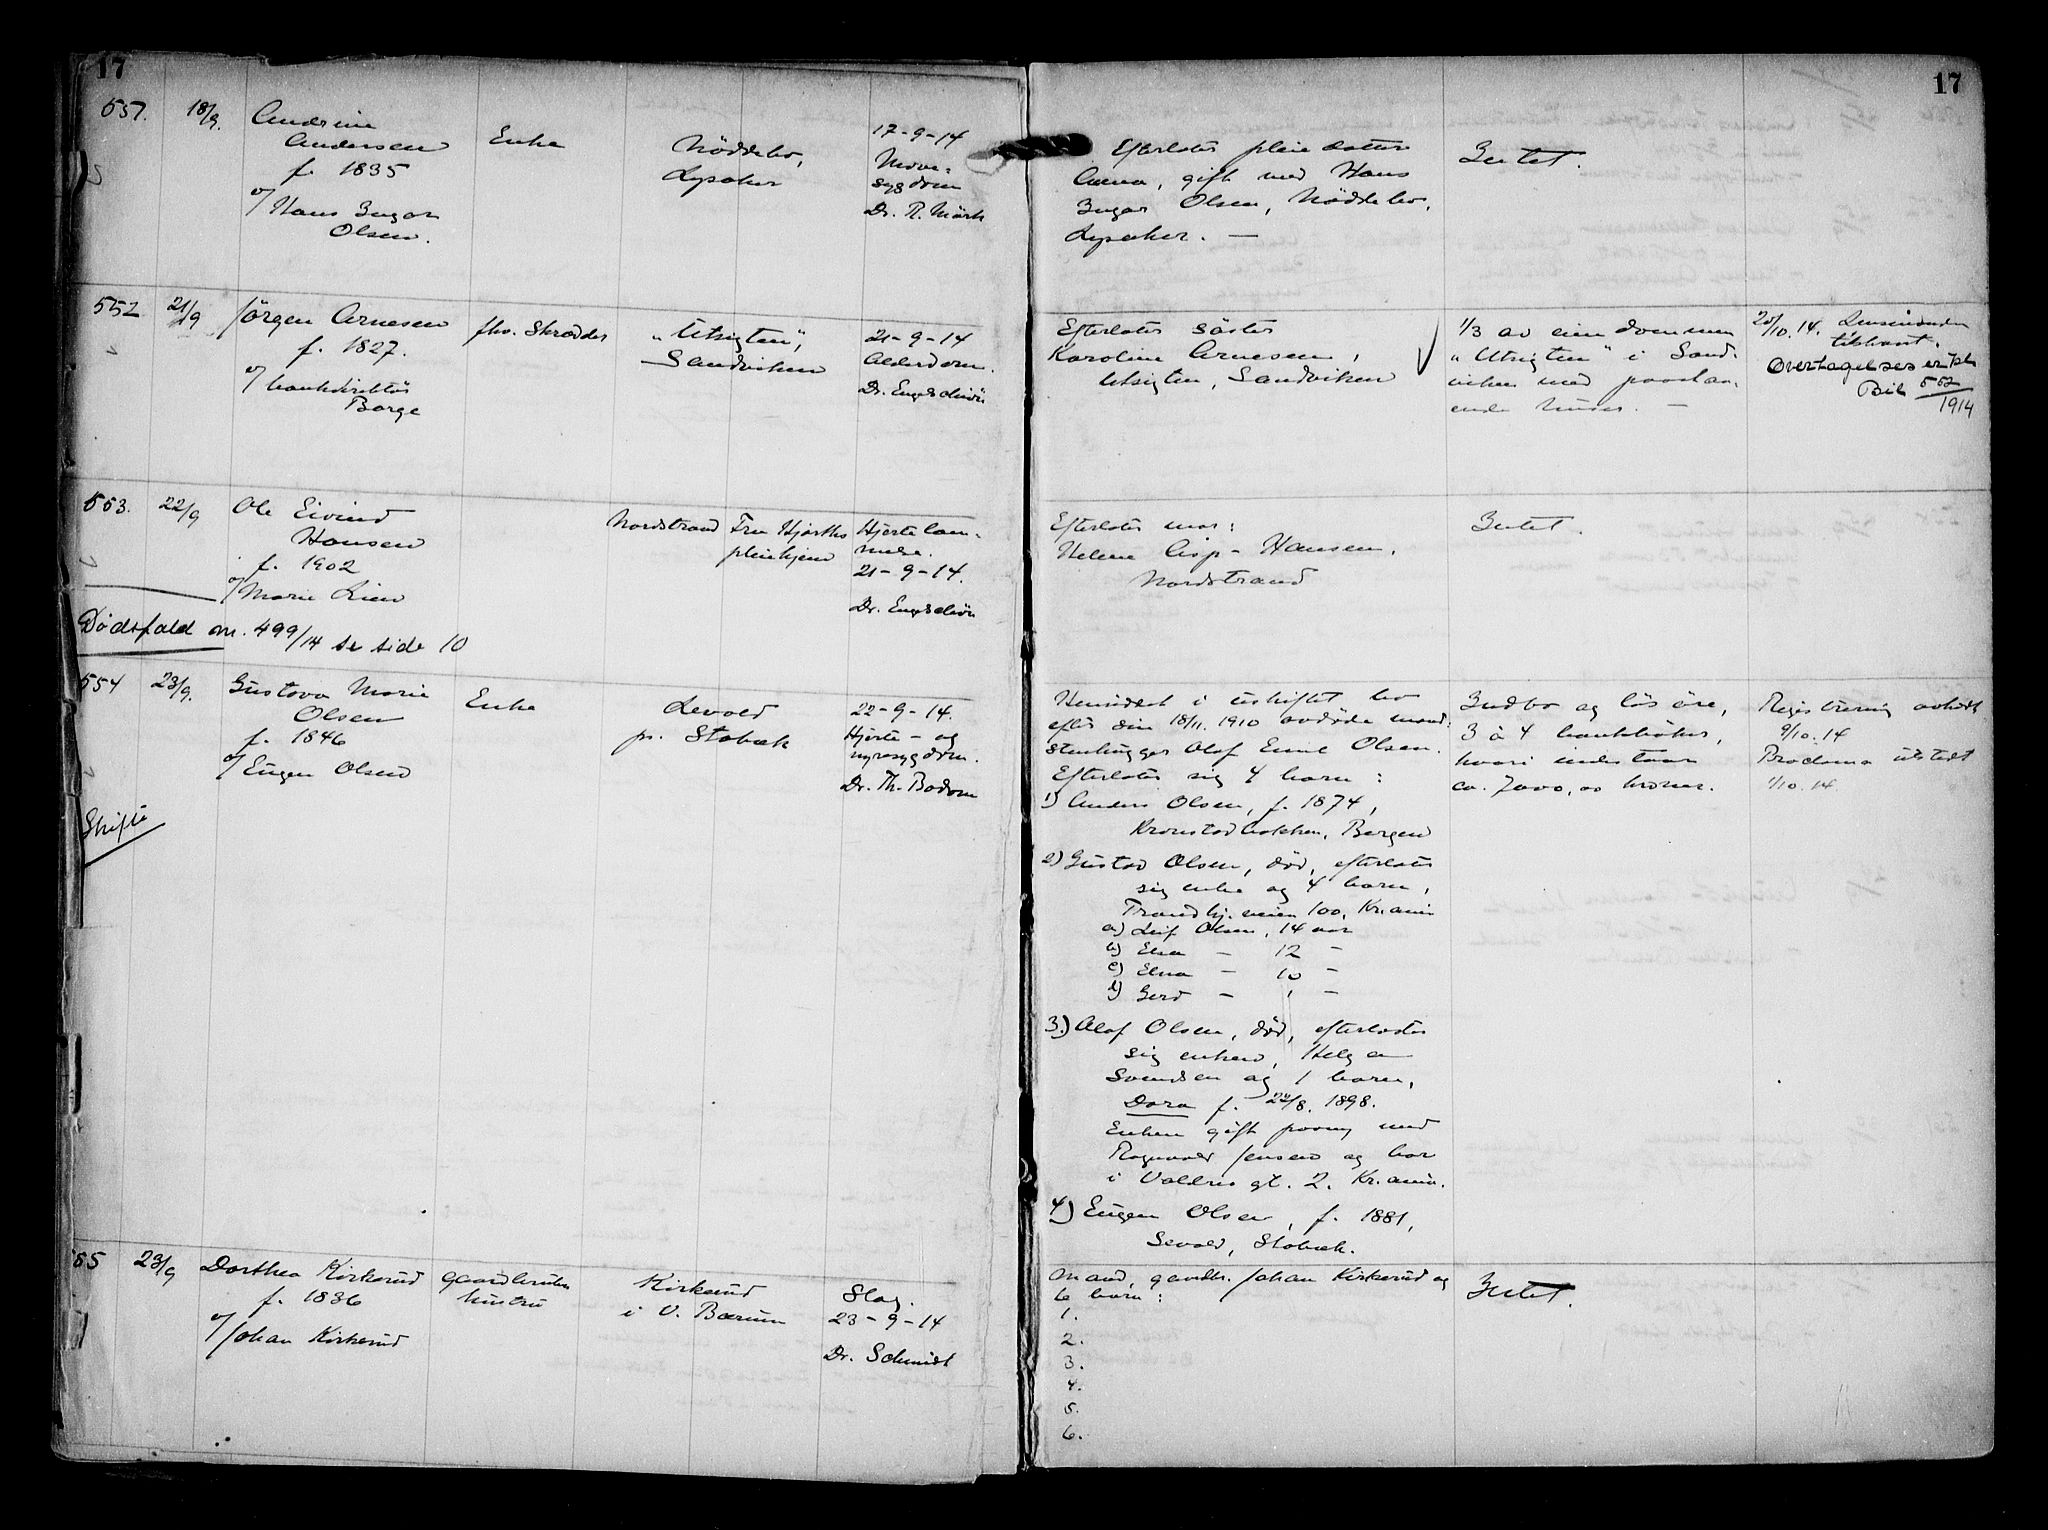 17
551. 18/9. Andrine
Andersen
f. 1835
v/ Hans Ingar
Olsen.
Enke
Nöddebo,
Lysaker
17-9-14
Mave-
sygdom
Dr. R. Mörk
552 21/9 Jörgen Arnesen
f. 1827.
v/ bankdirektör
Borge
fhv. Skrædder
"Utsigten",
Sandviken
21-9-14
Alderdom.
Dr. Engelschiön
553. 22/9 Ole Eivind
Hansen
f. 1902
v/ Marie Lien
Nordstrand
Fru Hjorths
pleiehjem
Hjertelam-
melse.
21-9-14.
Dr. Engelschiön
Dödsfald nr. 499/14 se side 10
554 23/9. Gustava Marie
Olsen
f. 1846
v/ Eugen Olsen
Skifte
Enke
Levold
pr. Stabæk
22-9-14.
Hjerte- og
nyresygdom.
Dr. Th. Bodom
555 23/9 Dorthea Kirkerud
f. 1836
v/ Johan Kirkerud
gaardbruker
hustru
Kirkerud
i V. Bærum
Slag.
23-9-14
Dr. Schmidt
17
Efterlater pleiedatter
Anna, gift med Hans
Ingar Olsen, Nöddebo,
Lysaker. —
Intet.
Efterlater söster
Karoline Arnesen,
Utsigten, Sandviken
1/3 av eiendommen
"Utsigten" i Sand-
viken med paastaa-
ende huser. —
20/10.14. Lensmanden
tilskrevet.
Overtagelseserkl.
Bil 552/1914
Efterlater mor:
Helene Asp-Hansen,
Nordstrand
Intet.
Hensiddet i uskiftet bo
efter sin 18/11. 1910 avdöde mand:
stenhugger Olaf Emil Olsen.
Efterlater sig 4 barn:
1) Anders Olsen, f. 1874,
Kronstadbakken, Bergen
2) Gustav Olsen, död, efterlater
sig enke og 4 barn,
Trondhj.veien 100, Kr.ania
a) Leif Olsen, 14 aar
b) Elsa — 12 —
c) Elna — 10 —
d) Gerd — 1 —
3.) Olaf Olsen, död, efterlater
sig enken, Helga
Svendsen og 1 barn,
Dora f. 22/8. 1898.
Enken gift paany med
Ragnvald Jensen og bor
i Valdres gt. 2. Kr.ania.
4) Eugen Olsen, f. 1881,
Levold, Stabæk.
Indbo og lösöre,
3 à 4 bankböker,
hvori indestaar
ca. 7000,00 kroner.
Registrering avholdt
9/10.14
Proclama utstedt
1/10.14.
Mand, gaardbr. Johan Kirkerud og
6 barn:
1.
2.
3.
4.
5.
6.
Intet.